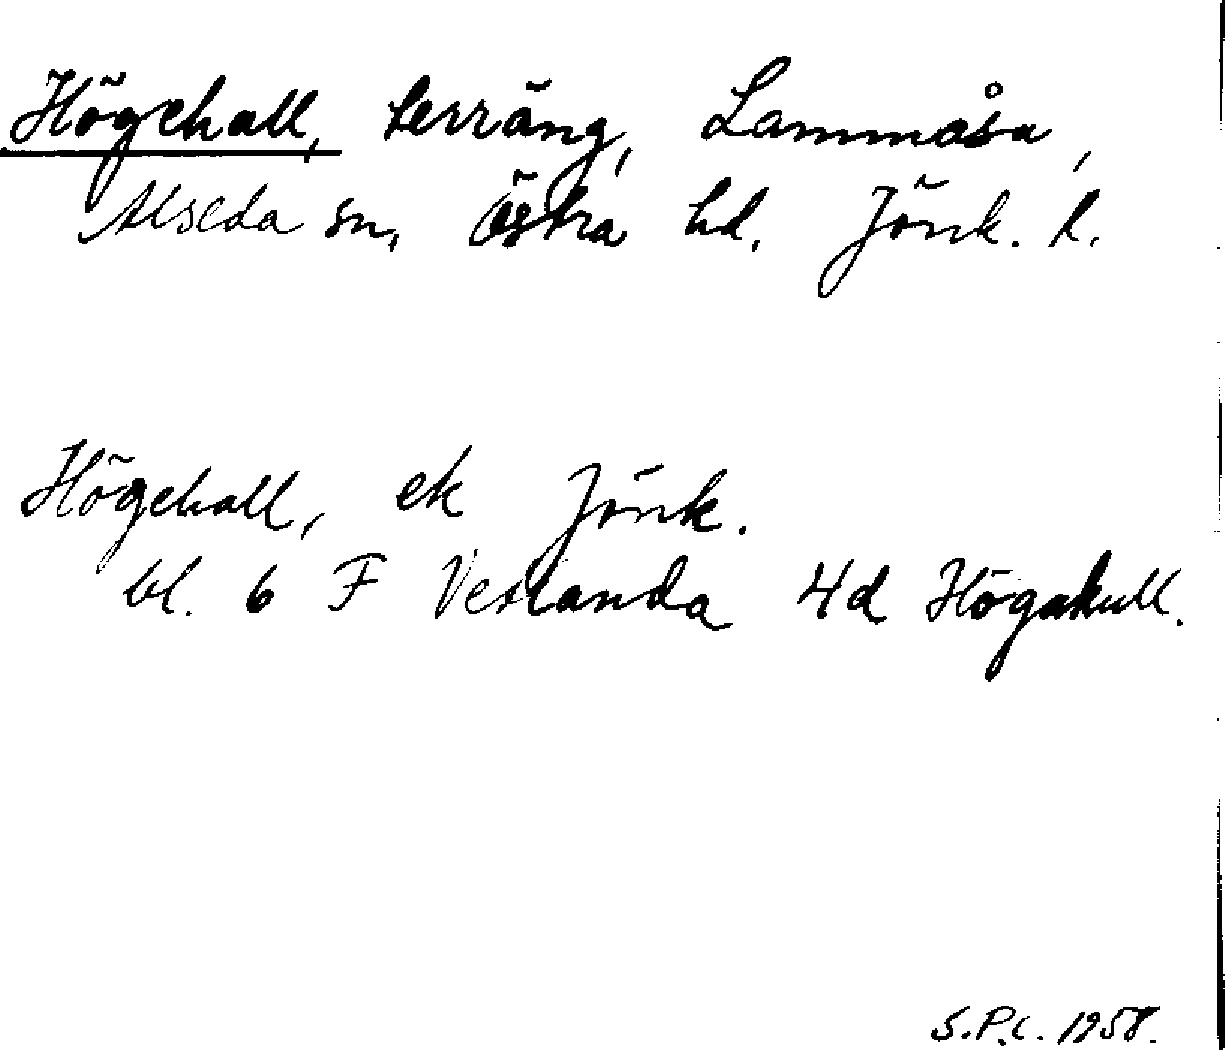 Högehall, terräng, Lammåsa,
Alseda sn, Östra hd. Jönk. l.
Högehall, ek Jönk.
bl. 6 F Vetlanda 4d Högakull.
S.P.C. 1958.